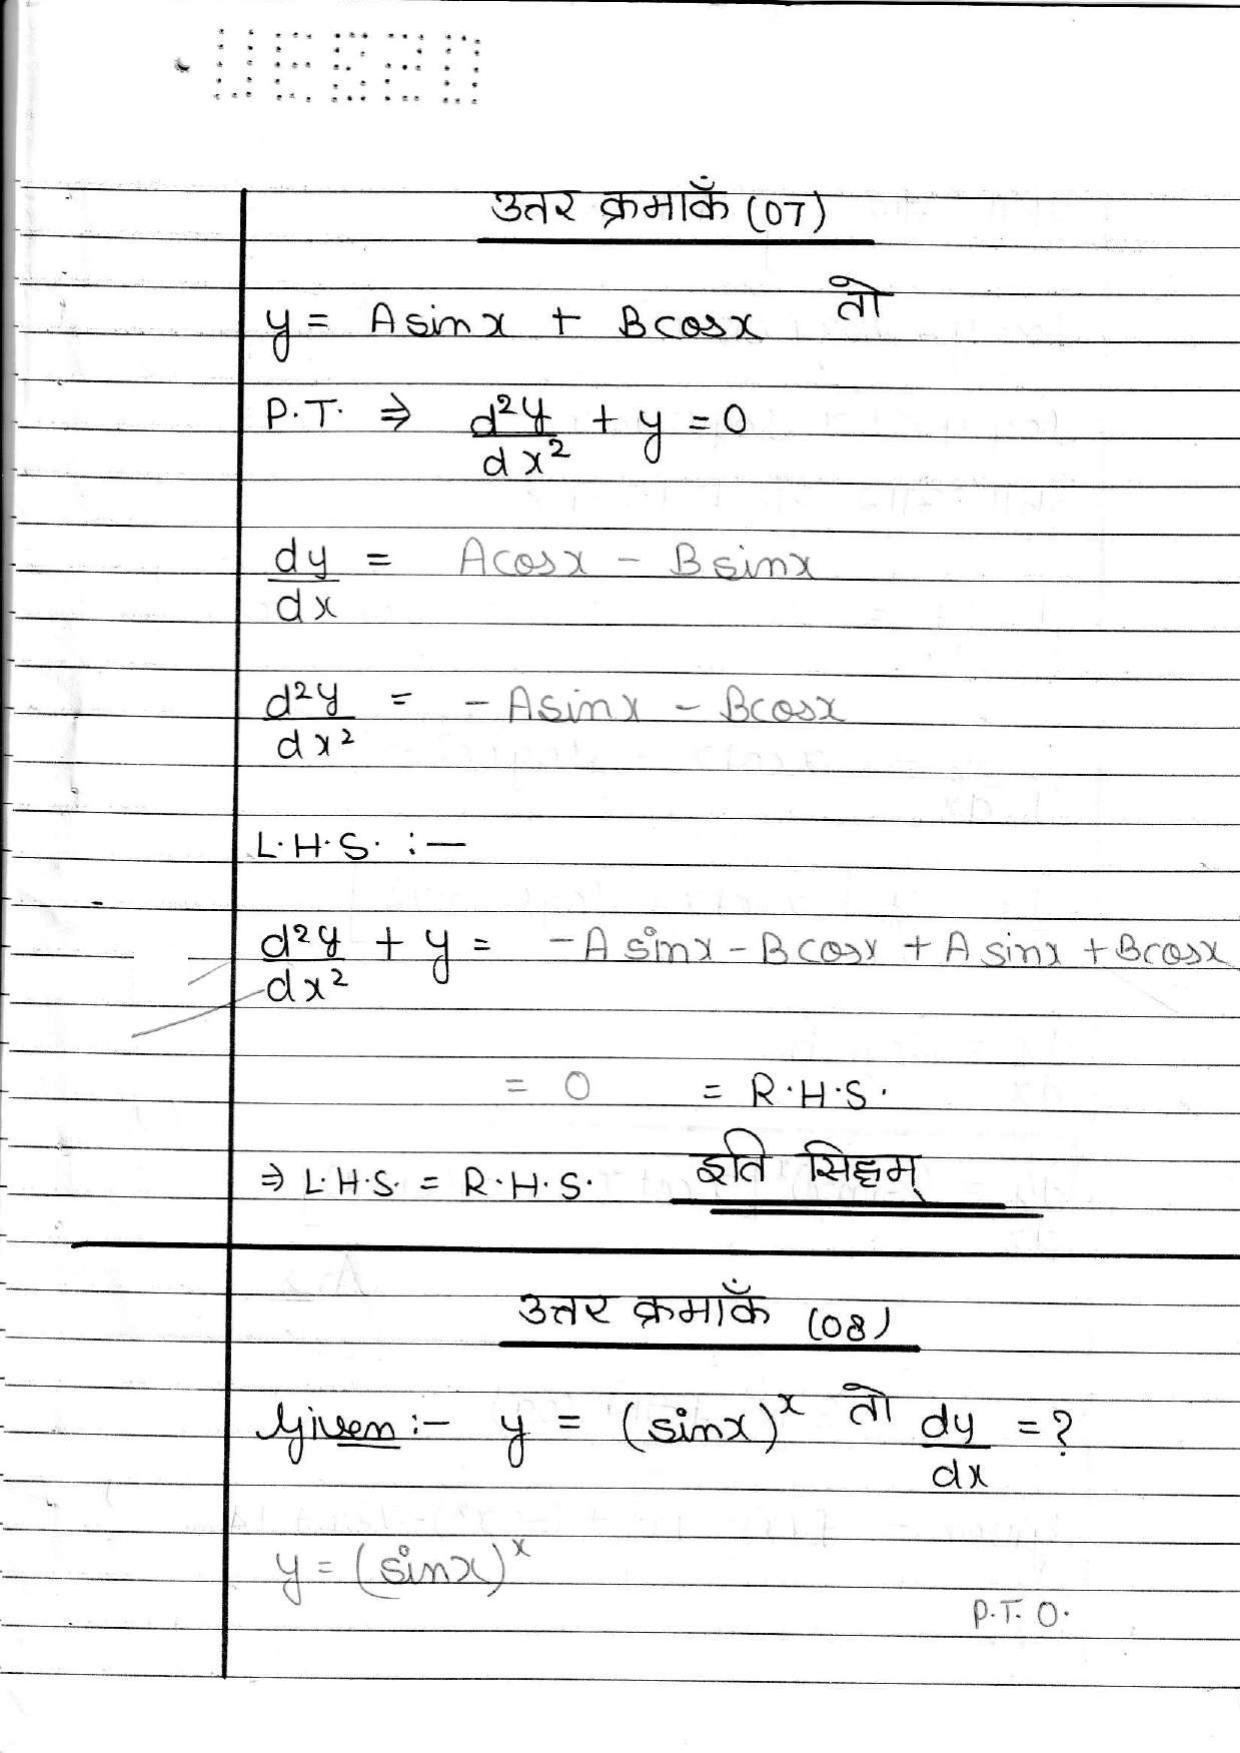 उतर क्रमाकँ (07)
y = A sinx + B cosx तो
P.T. ⇒ d²y/dx² + y = 0
dy/dx = A cosx - B sinx
d²y/dx² = - A sinx - B cosx
L.H.S. :-
d²y/dx² + y = - A sinx - B cosx + A sinx + B cosx
= 0 = R.H.S.
⇒ L.H.S. = R.H.S. इति सिद्धम्
उत्तर क्रमाँक (08)
Given :- y = (sinx)ˣ तो dy/dx = ?
y = (sinx)ˣ
P.T.O.